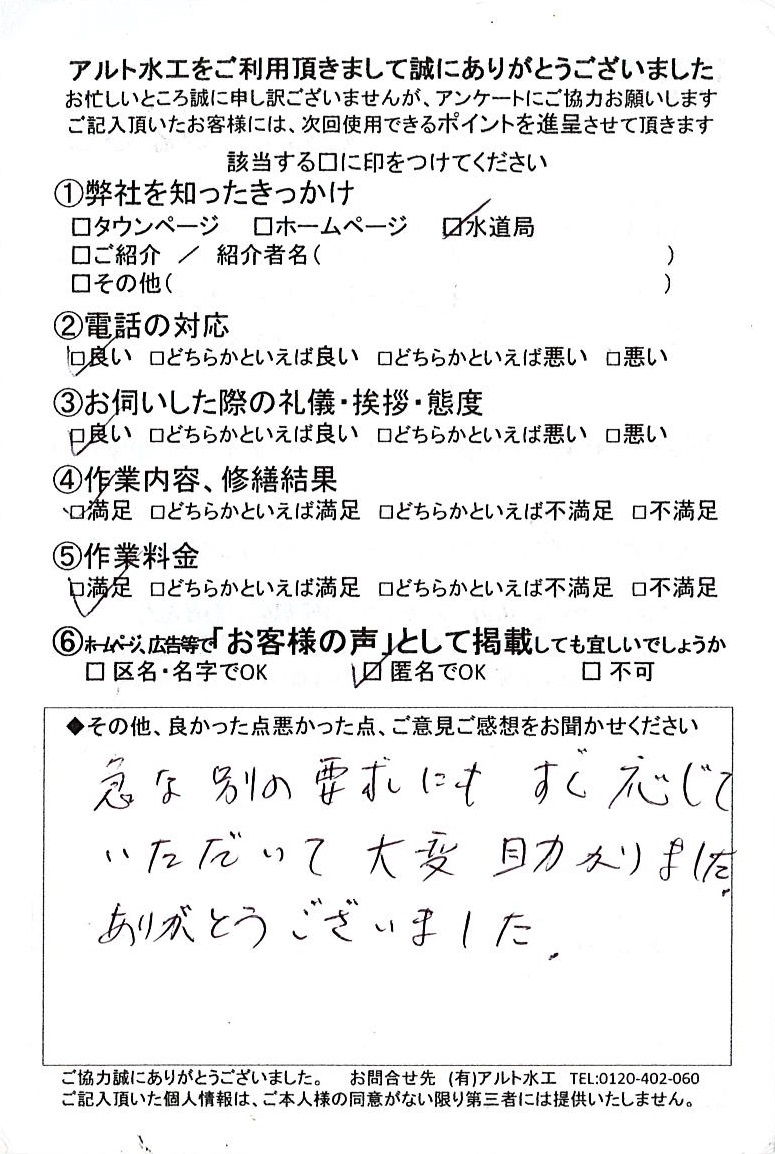 アルト水工をご利用頂きまして誠にありがとうございました
お忙しいところ誠に申し訳ございませんが、アンケートにご協力お願いします
ご記入頂いたお客様には、次回使用できるポイントを進呈させて頂きます
該当する□に印をつけてください
①弊社を知ったきっかけ
□タウンページ □ホームページ ☑水道局
□ご紹介 / 紹介者名( )
□その他( )
②電話の対応
☑良い □どちらかといえば良い □どちらかといえば悪い □悪い
③お伺いした際の礼儀・挨拶・態度
☑良い □どちらかといえば良い □どちらかといえば悪い □悪い
④作業内容、修繕結果
☑満足 □どちらかといえば満足 □どちらかといえば不満足 □不満足
⑤作業料金
☑満足 □どちらかといえば満足 □どちらかといえば不満足 □不満足
⑥ホームページ、広告等で「お客様の声」として掲載しても宜しいでしょうか
□ 区名・名字でOK ☑ 匿名でOK □ 不可
◆その他、良かった点悪かった点、ご意見ご感想をお聞かせください
急な別の要求にも すぐ応じて
いただいて 大変 助かりました。
ありがとうございました。
ご協力誠にありがとうございました。 お問合せ先 (有)アルト水工 TEL:0120-402-060
ご記入頂いた個人情報は、ご本人様の同意がない限り第三者には提供いたしません。